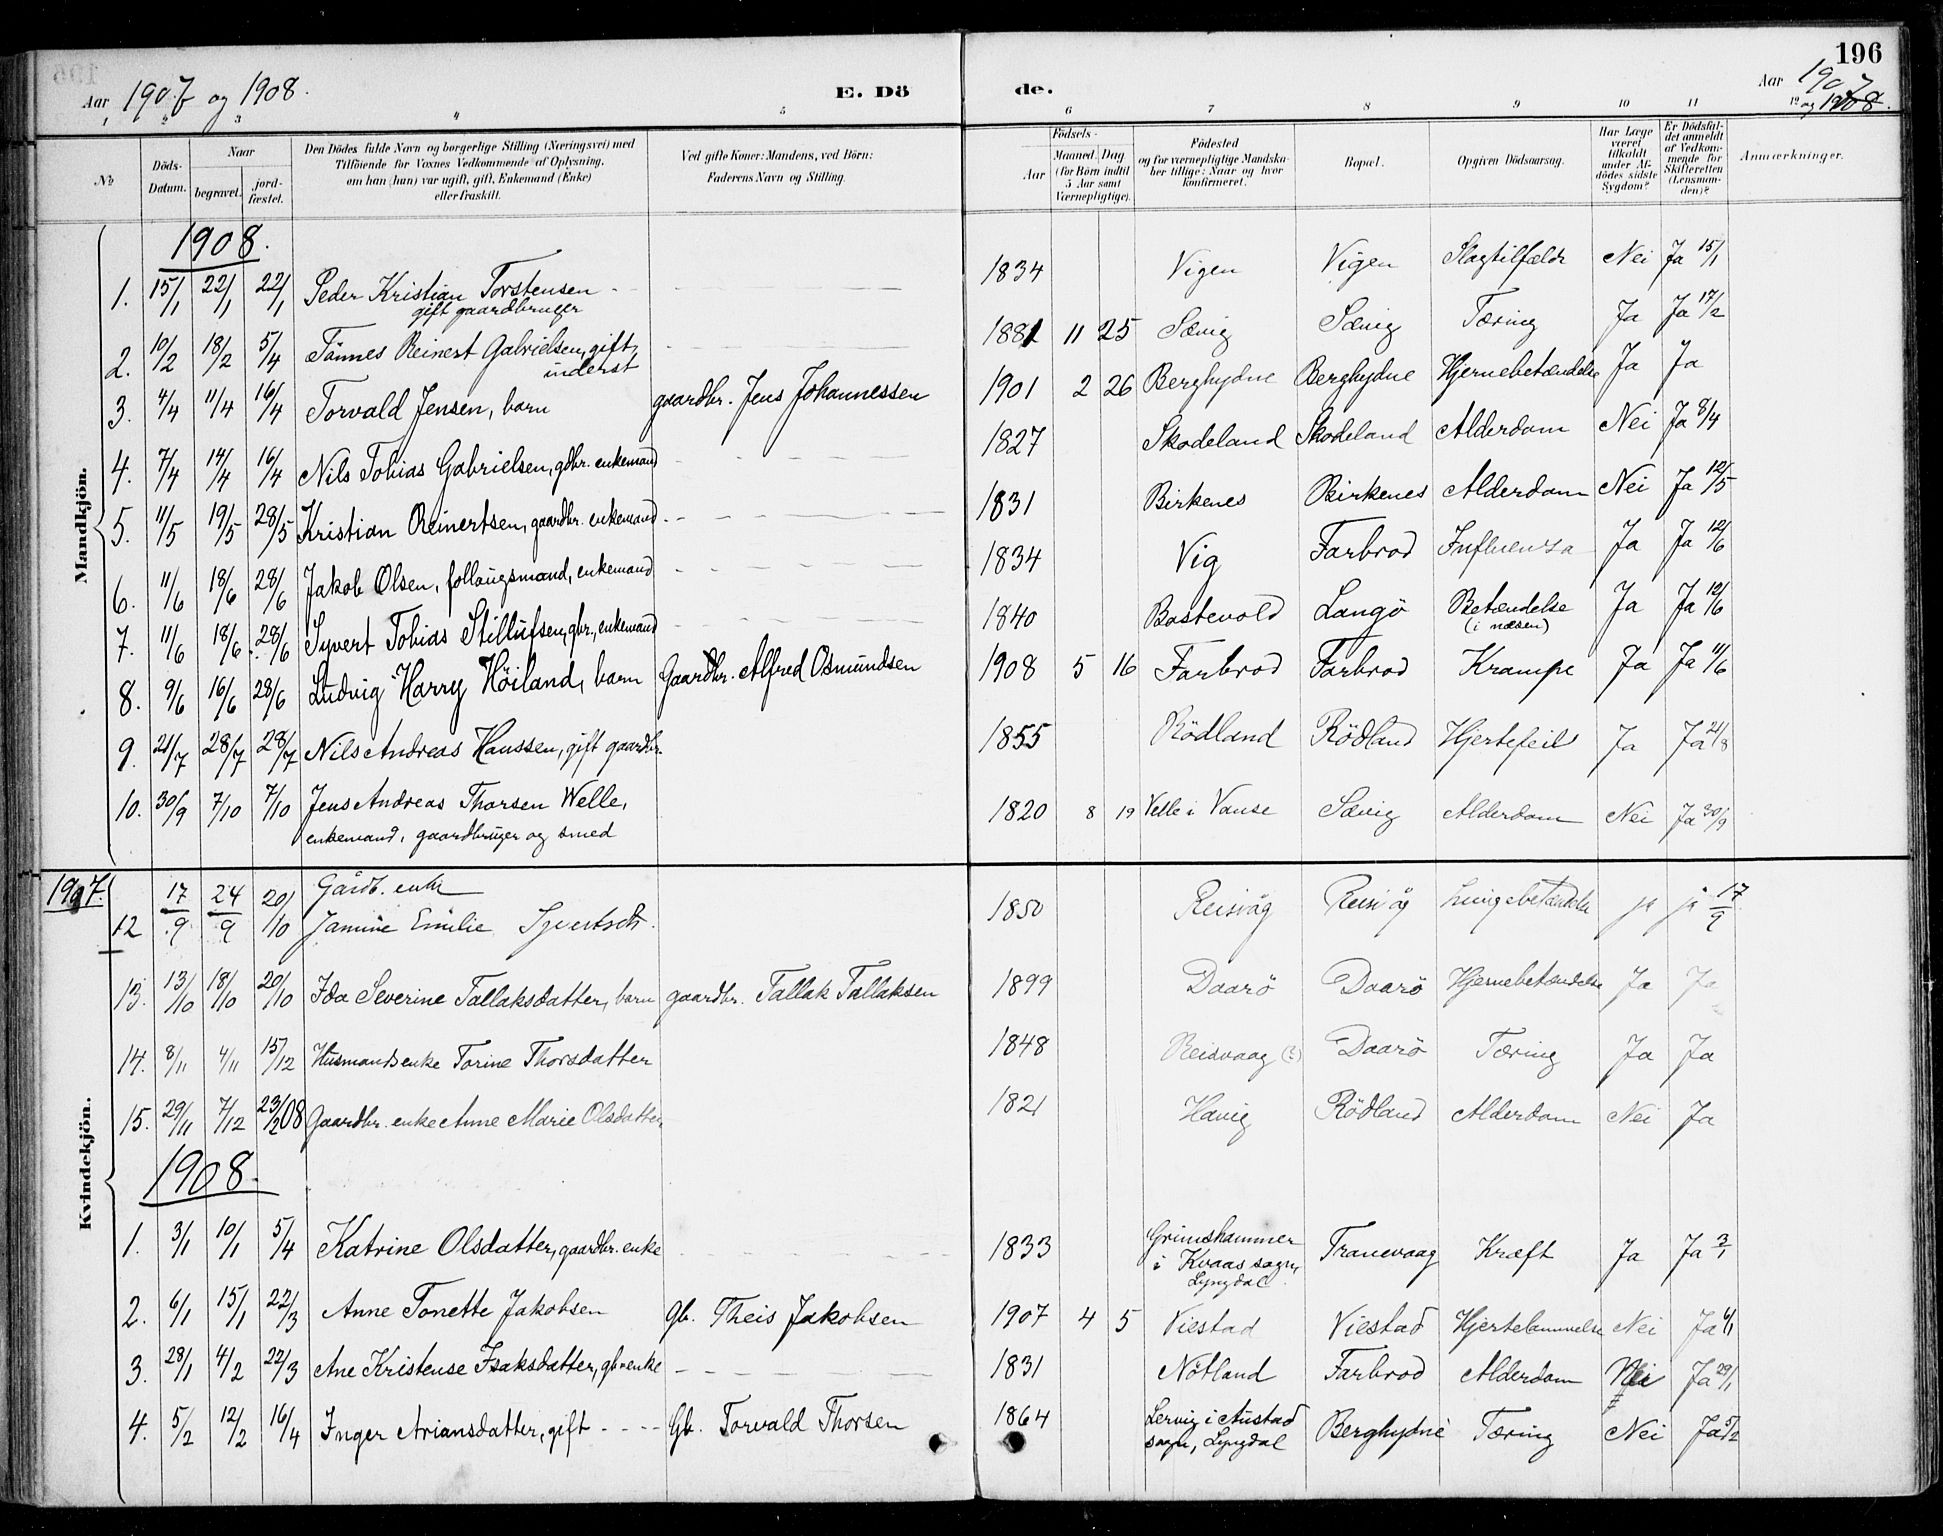 196
Aar 1907 og 1908.
E. Dö
de.
Aar 1907 og 1908.
1 2 3 4 5 6 7 8 9 10 11 12
№
Döds-Datum.
Naar
begravet.
jord-fæstet.
Den Dödes fulde Navn og borgerlige Stilling (Næringsvei) med
Tilföiende for Voxnes Vedkommende af Oplysning,
om han (hun) var ugift, gift, Enkemand (Enke)
eller fraskilt.
Ved gifte Koner: Mandens, ved Börn:
Faderens Navn og Stilling.
Födsels-
Aar
Maaned. Dag
(for Börn indtil
5 Aar samt
Værnepligtige).
Födested
og for værnepligtige Mandska-
ber tillige: Naar og hvor
konfirmeret.
Bopæl.
Opgiven Dödsaarsag.
Har Læge
været
tilkaldt
under Af-
dödes sidste
Sygdom?
Er Dödsfal-
det anmeldt
af Vedkom-
mende for
Skifteretten
(Lensman-
den)?
Anmærkninger.
Mandkjön.
1908.
1. 15/1 22/1 22/1 Peder Kristian Torstensen 1834 Vigen Vigen Slagtilfælde Nei Ja 15/1
gift gaardbruger
2. 10/2 18/2 5/4 Tönnes Reinert Gabrielsen, gift, 1881 11 25 Sævig Sævig Tæring Ja Ja 17/2
inderst
3. 4/4 11/4 16/4 Torvald Jensen, barn gaardbr. Jens Johannessen 1901 2 26 Berghydne Berghydne Hjernebetændelse Ja Ja
4. 7/4 14/4 16/4 Nils Tobias Gabrielsen, gdbr. enkemand 1827 Skodeland Skodeland Alderdom Nei Ja 8/4
5. 11/5 19/5 28/5 Kristian Reinertsen, gaardbr. enkemand 1831 Birkenes Birkenes Alderdom Nei Ja 12/5
6. 11/6 18/6 28/6 Jakob Olsen, follaugsmand, enkemand 1834 Vig Farbrod Influensa Ja Ja 12/6
7. 11/6 18/6 28/6 Syvert Tobias Stillufsen, gbr., enkemand 1840 Bastevold Langö Betændelse Ja Ja 12/6
(i næsen)
8. 9/6 16/6 28/6 Ludvig Harry Höiland, barn Gaardbr. Alfred Osmundsen 1908 5 16 Farbrod Farbrod Krampe Ja Ja 11/6
9. 21/7 28/7 28/7 Nils Andreas Hanssen, gift gaardbr. 1855 Rödland Rödland Hjertefeil Ja Ja 21/8
10. 30/9 7/10 7/10 Jens Andreas Thorsen Welle, 1820 8 19 Velle i Vanse Sævig Alderdom Nei Ja 30/9
enkemand, gaardbruger og smed
Kvindekjön.
1907.
Gårdb. enke
12 17/9 24/9 20/10 Jamine Emilie Syvertsdt. 1850 Reisvåg Reisvåg Lungebetændelse ja ja 17/9
13. 13/10 18/10 20/10 Ida Severine Tallaksdatter, barn gaardbr. Tallak Tallaksen 1899 Daarö Daarö Hjernebetændelse Ja Ja
14. 8/11 4/11 15/12 Husmands enke Torine Thorsdatter 1848 Reisvaag (?) Daarö Tæring Ja Ja
15. 29/11 7/12 23/2 08 Gaardbr. enke Anne Marie Olsdatter, 1821 Havig Rödland Alderdom Nei Ja
1908.
1. 3/1 10/1 5/4 Katrine Olsdatter, gaardbr. enke 1833 Grimshammer Tranevaag Kræft Ja Ja 3/1
i Kvaas sogn,
Lyngdal.
2. 6/1 15/1 22/3 Anne Tonette Jakobsen Gb. Theis Jakobsen 1907 4 5 Viestad Viestad Hjertelammelse Nei Ja 6/1
3. 28/1 4/2 22/3 Ane Kristense Isaksdatter, gb. enke 1831 Nötland Farbrod Alderdom Nei Ja 29/1
4. 5/2 12/2 16/4 Inger Ariansdatter, gift Gb. Torvald Thorsen 1864 Lervig i Austad Berghydne Tæring Nei Ja 5/2
sogn, Lyngdal